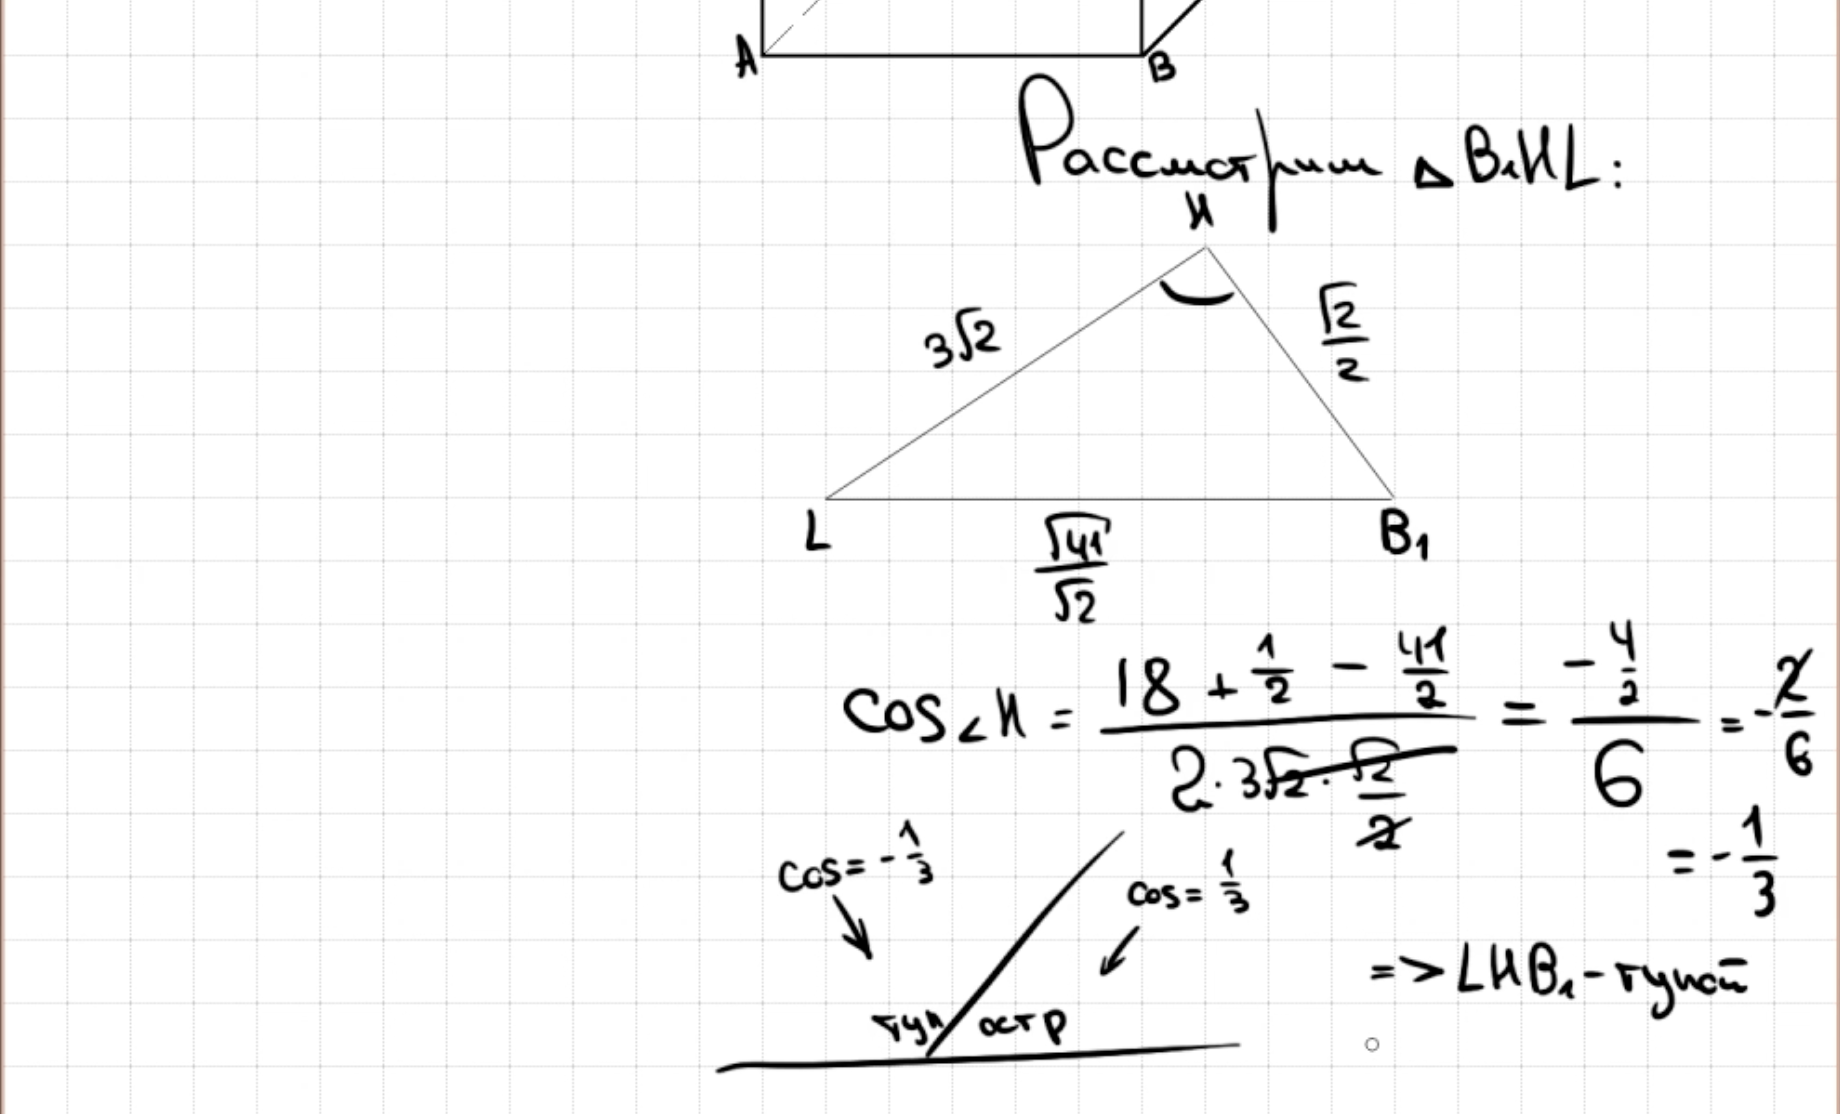 A B
Рассмотрим △B₁HL:
H
3√2 √2/2
L √41/√2 B₁
cos∠H = (18 + 1/2 - 41/2)/(2·3√2·√2/2) = (-4/2)/6 = -2/6
= -1/3
cos = -1/3 cos = 1/3
=> LHB₁ - тупой
туп остр